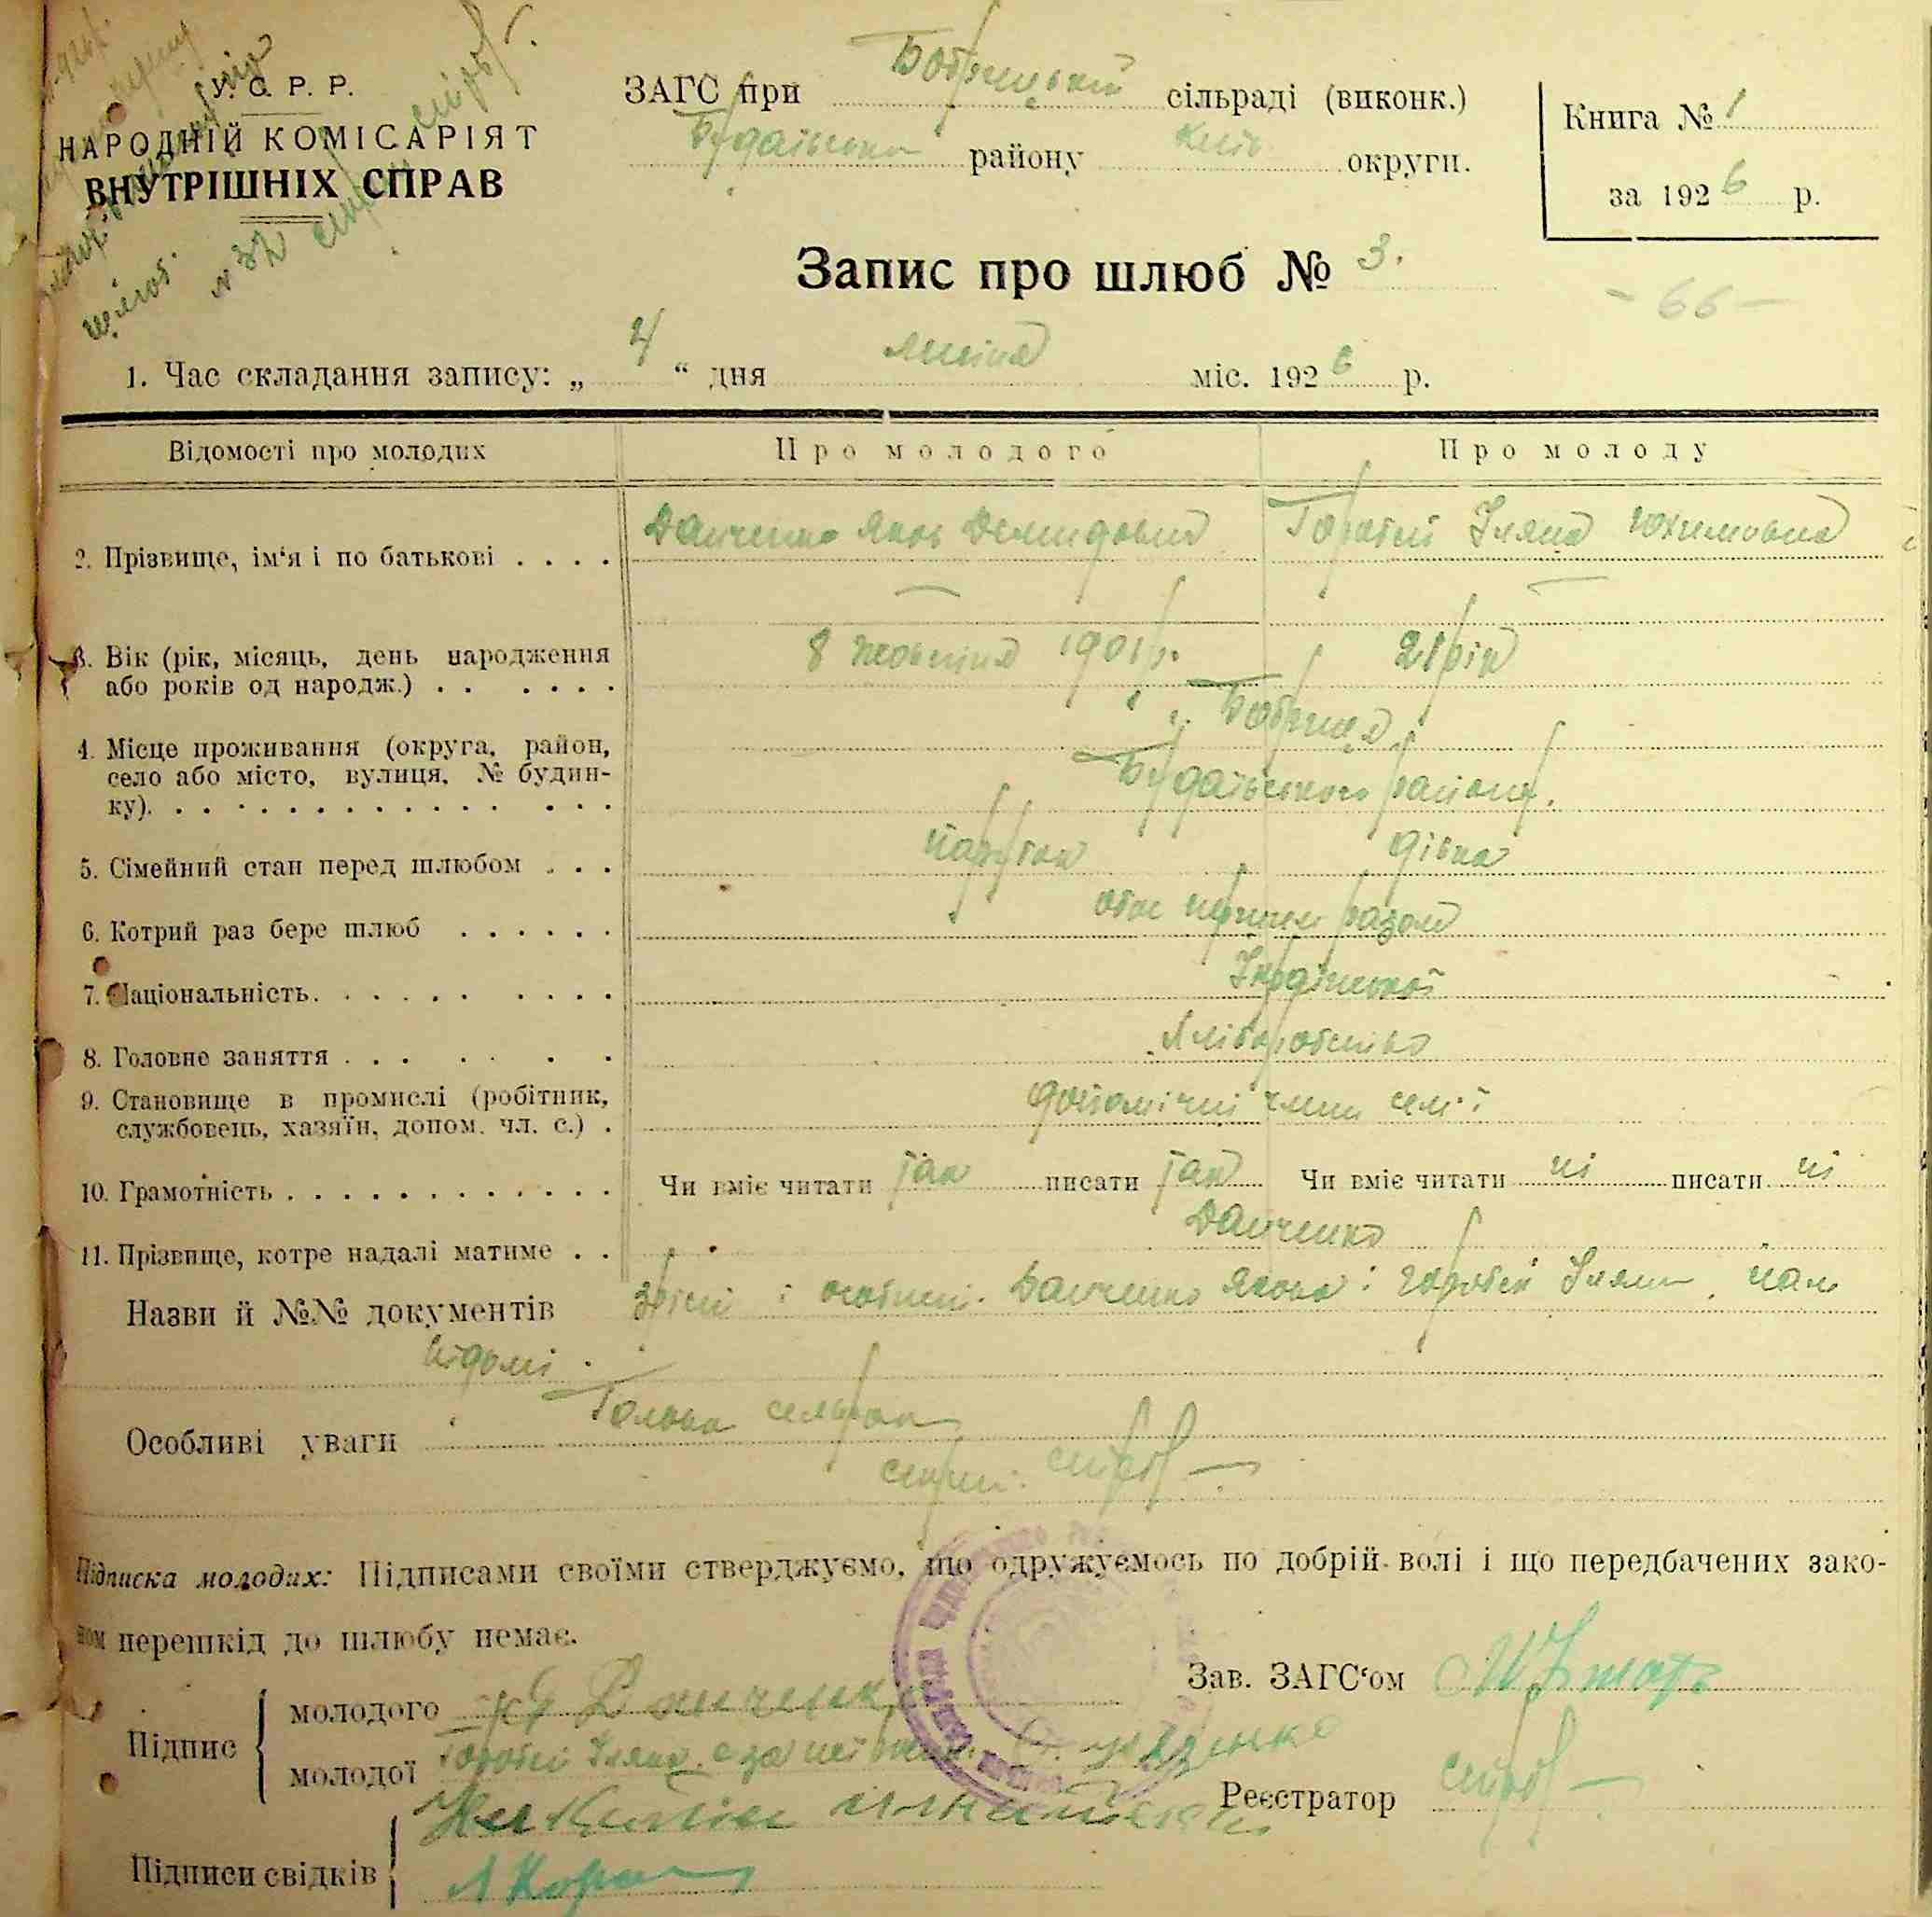 У. С. Р. Р.
НАРОДНІЙ КОМІСАРІЯТ
ВНУТРІШНІХ СПРАВ
ЗАГС при Бобрицькій сільраді (виконк.)
Будаївсько району Київ округи.
Книга № 1
за 1926 р.
Запис про шлюб № 3.
- 66 -
1. Час складання запису: „ 4 “ дня липня міс. 1926 р.
Відомості про молодих Про молодого Про молоду
2. Прізвище, ім‘я і по батькові . . . . Данченко Яков Демидович Горобей Уляна Юхимовна
3. Вік (рік, місяць, день народження
або років од народж.) . . . . . . 8 жовтня 1901 р. 21 рік
4. Місце проживання (округа, район, с. Бобриця
село або місто, вулиця, № будин-
ку). Будаївського району.
5. Сімейний стан перед шлюбом . . . парубок дівка
6. Котрий раз бере шлюб . . . . . . обоє першим разом
7. Національність. Української
8. Головне заняття . . . Хліборобство
9. Становище в промислі (робітник,
службовець, хазяїн, допом. чл. с.) . допомічні члени сем'ї
10. Грамотність Чи вміє читати так писати так Чи вміє читати ні писати ні
11. Прізвище, котре надалі матиме . . Данченко
Назви й №№ документів особисті Данченко Якова і Горобей Уляни нам
відомі.
Голова сільради
Особливі уваги
секрет.
Підписка молодих: Підписами своїми стверджуємо, що одружуємось по добрій волі і що передбачених зако-
ном перешкід до шлюбу немає.
Зав. ЗАГС‘ом
Підпис
молодого Я Данченко
молодої Горобей Уляна, а за неї
Реєстратор
Підписи свідків